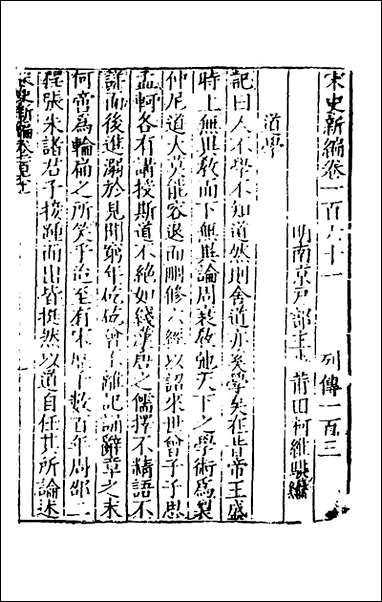 宋史新編卷一百六十一　列傳一百三
明南京戸部主事莆田柯維騏編
道學
記曰人不學不知道然則舍道亦奚學矣在昔帝王盛
時上無異敎而下無異論周衰敎弛天下之學術爲裂
仲尼道大莫能容退而刪修六經以詔來世曾子子思
孟軻各有講授斯道不絶如綫漢唐之儒擇不精語不
詳而後進溺於見聞窮年矻矻曾子雜記誦辭章之末
何啻爲輪扁之所笑乎迨至有宋歷十數百年周邵二
程張朱諸君子接踵而出皆挺然以道自任其所論述
宋史新編卷一百六十一